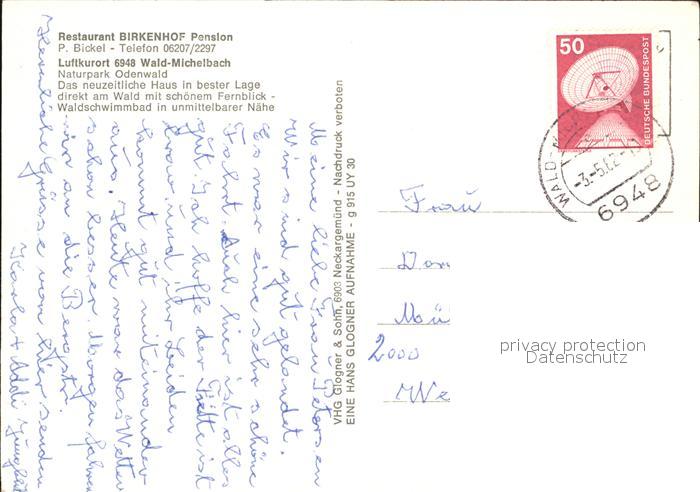 Restaurant BIRKENHOF Pension
P. Bickel - Telefon 06207/2297
Luftkurort 6948 Wald-Michelbach
Naturpark Odenwald
Das neuzeitliche Haus in bester Lage
direkt am Wald mit schönem Fernblick -
Waldschwimmbad in unmittelbarer Nähe
Meine liebe Frau Petersen
Wir sind gut gelandet.
Es war eine sehr schöne
Fahrt. Auch hier ist alles
gut. Ich hoffe der ist
brav und ihr beiden
kommt gut miteinander
aus. Heute war das Wetter
schon besser. Morgen fahren
wir an die Bergstr.
Herzliche Grüsse von hier senden
Karla + Addi
VHG Glogner & Sohn, 6903 Neckargemünd - Nachdruck verboten
EINE HANS GLOGNER AUFNAHME - g 915 UY 30
50
DEUTSCHE BUNDESPOST
WALD-MICH
-3.-5.
6948
Frau
Mü
2000
We
privacy protection
Datenschutz